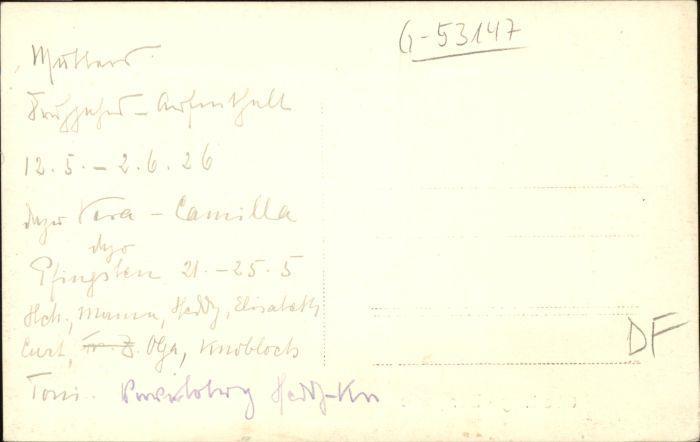 G-53147
Mutters
Frühjahrs-Aufenthalt
12.5.-2.6.26
dazu Vera-Camilla
dazu
Pfingsten 21.-25.5
Hch., Mama, Heddy, Elisabeth
Curt, Olga, Knobloch
DF
Toni. Heddy-Kn